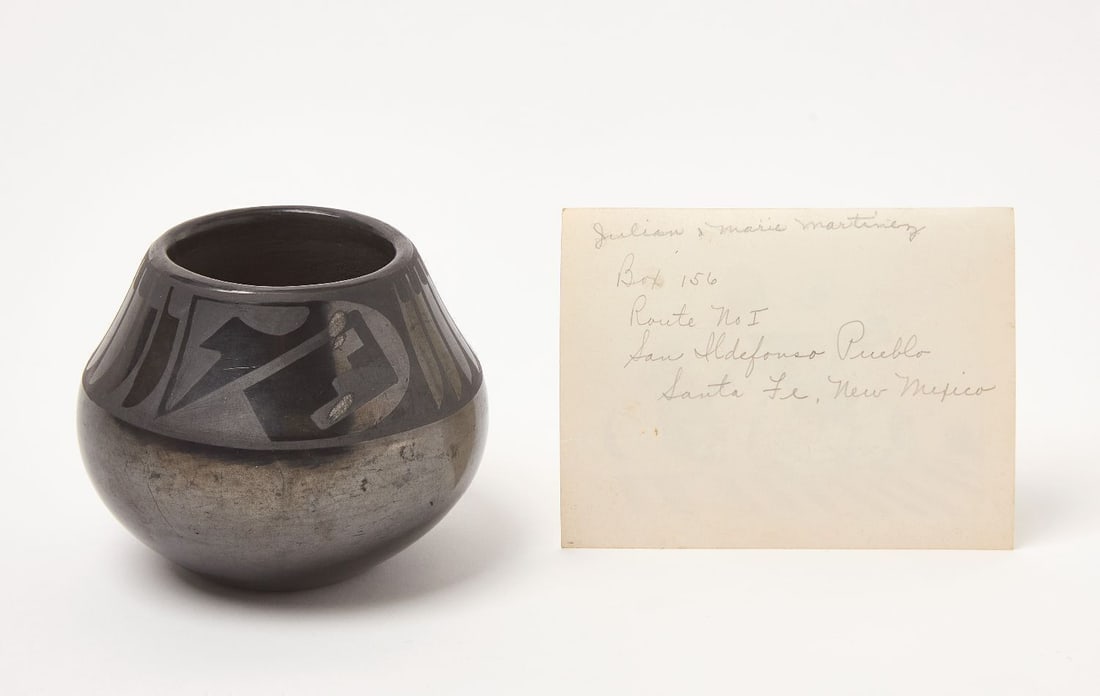 Julian & Marie Martinez
Box 156
Route No I
San Ildefonso Pueblo
Santa Fe, New Mexico